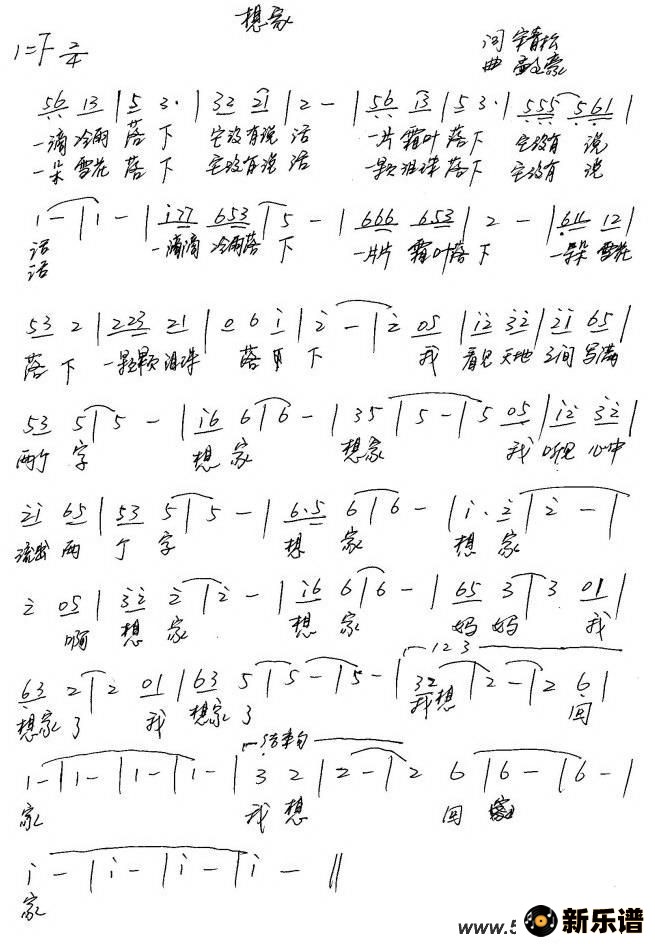 想家
1=F 2/4
词 宇青松
曲
56 13 | 5 3· | 32 21 | 2 - | 56 13 | 5 3· | 555 561 |
一滴 冷雨 落 下 它没有说 话 一片 霜叶 落 下 它没有 说
一朵 雪花 落 下 它没有说 话 一颗 泪珠 落 下 它没有 说
1 - | 1 - | i77 653 | 5 - | 666 653 | 2 - | 611 12 |
话 一滴滴 冷雨落 下 一片片 霜叶落 下 一朵朵 雪花
话
53 2 | 223 21 | 0 6 i | 2 - | 2 05 | i2 32 | 2i 65 |
落 下 一颗颗 泪珠 落 下 我 看见 天地 之间 写满
53 5 | 5 - | i6 6 | 6 - | 35 | 5 - | 5 05 | i2 32 |
两个 字 想 家 想家 我 听见 心中
2i 65 | 53 5 | 5 - | 6·5 6 | 6 - | i· 2 | 2 - |
流出 两 个 字 想 家 想 家
2 05 | 32 2 | 2 - | i6 6 | 6 - | 65 3 | 3 01 |
啊 想 家 想 家 妈 妈 我
123
63 2 | 2 01 | 63 5 | 5 - | 5 - | 32 | 2 - | 2 6 |
想家 了 我 想家 了 我想 回
结束句
1 - | 1 - | 1 - | 1 - | 1 - | 3 2 | 2 - | 2 6 | 6 - | 6 - |
家 我 想 回
i - | i - | i - | i - ‖
家
www.5
新乐谱